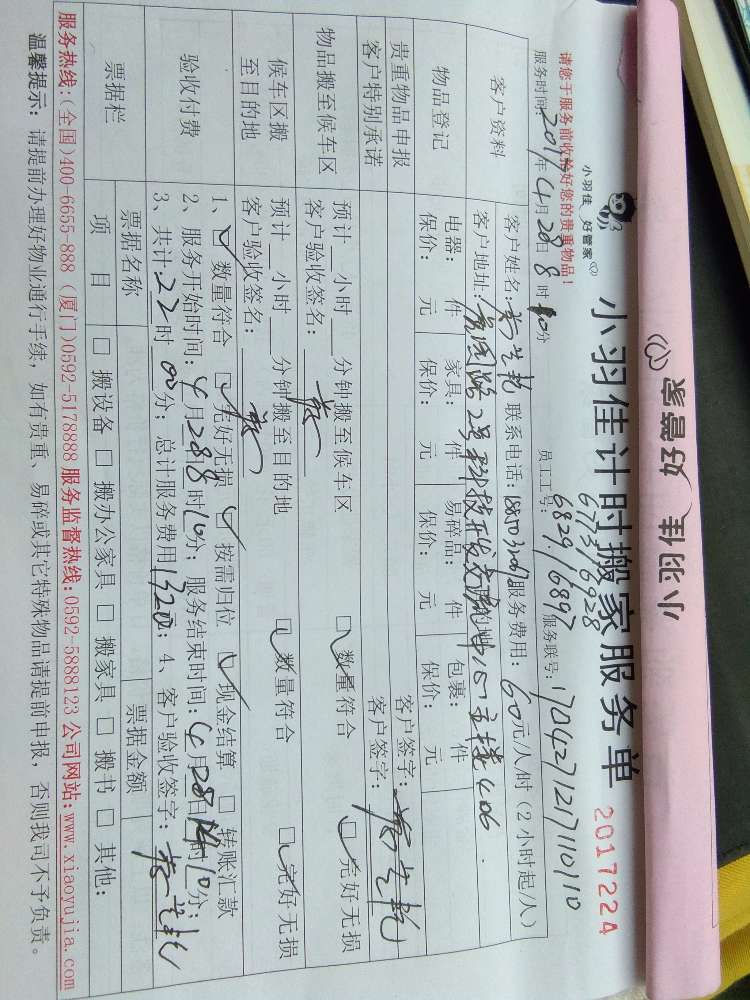 小羽佳 好管家
小羽佳 好管家
小羽佳计时搬家服务单 2017224
请您于服务前收拾好您的贵重物品！
员工工号：6829/6897 服务联号：1704271217110110
服务时间：2017年4月28日8时10分
客户资料 客户姓名： 联系电话： 服务费用：60元/人/时（2小时起/人）
客户地址： 2号 主楼406
物品登记 电器： 件 家具： 件 易碎品： 件 包裹： 件
保价： 元 保价： 元 保价： 元 保价： 元
贵重物品申报 客户签字：
客户特别承诺 客户签字：
物品搬至候车区 预计 小时 分钟搬至候车区 □数量符合 □完好无损
客户验收签名：
候车区搬至目的地 预计 小时 分钟搬至目的地 □数量符合 □完好无损
客户验收签名：
验收付费 1、□数量符合 □完好无损 □按需归位 □现金结算 □转账汇款
2、服务开始时间：4月28日8时10分；服务结束时间：4月28日 时10分；
3、共计：22时00分；总计服务费用1320；4、客户验收签字：
票据栏 票据名称 票据金额
项目 □搬设备 □搬办公家具 □搬家具 □搬书 □其他：
服务热线：(全国)400-6655-888 (厦门)0592-5178888 服务监督热线：0592-5888123 公司网站：www.xiaoyujia.com
温馨提示： 请提前办理好物业通行手续，如有贵重、易碎或其它特殊物品请提前申报，否则我司不予负责。